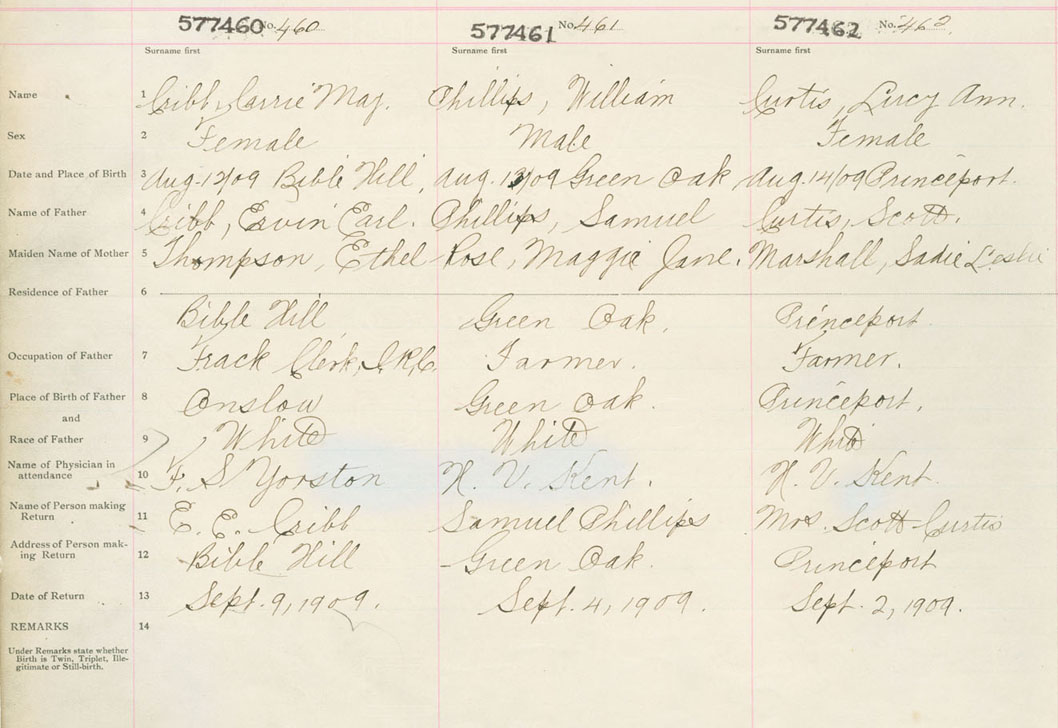 577460 No. 460 577461 No. 461 577462 No. 462
Surname first Surname first Surname first
Name 1 Cribb, Carrie May. Phillips, William Curtis, Lucy Ann.
Sex 2 Female Male Female
Date and Place of Birth 3 Aug. 12/09 Bible Hill, Aug. 13/09 Green Oak Aug. 14/09 Princeport.
Name of Father 4 Cribb, Ervin Earl. Phillips, Samuel Curtis, Scott.
Maiden Name of Mother 5 Thompson, Ethel Rose, Maggie Jane. Marshall, Sadie Leslie
Residence of Father 6
Bible Hill Green Oak. Princeport.
Occupation of Father 7 Track Clerk, I.R.C. Farmer. Farmer.
Place of Birth of Father 8 Onslow Green Oak. Princeport.
and
Race of Father 9 White White White
Name of Physician in
attendance 10 F. S Yorston H. V. Kent. H. V. Kent.
Name of Person making
Return 11 E. E. Cribb Samuel Phillips Mrs. Scott Curtis
Address of Person mak-
ing Return 12 Bible Hill Green Oak. Princeport
Date of Return 13 Sept. 9, 1909. Sept. 4, 1909. Sept. 2, 1909.
REMARKS 14
Under Remarks state whether
Birth is Twin, Triplet, Ille-
gitimate or Still-birth.